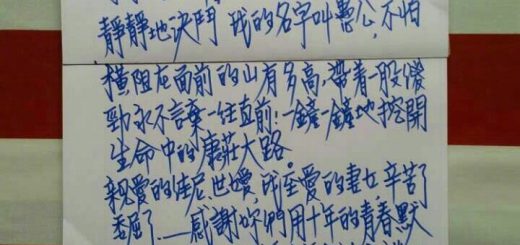 靜靜地決鬥 我的名字叫愚公,不怕
橫阻在面前的山有多高,帶着一股傻
勁永不言棄一往直前!一鏟一鏟地挖開
生命中的康莊大路。
親愛的 ,我至愛的妻女辛苦了
委屈了——感謝妳們用十年的青春默